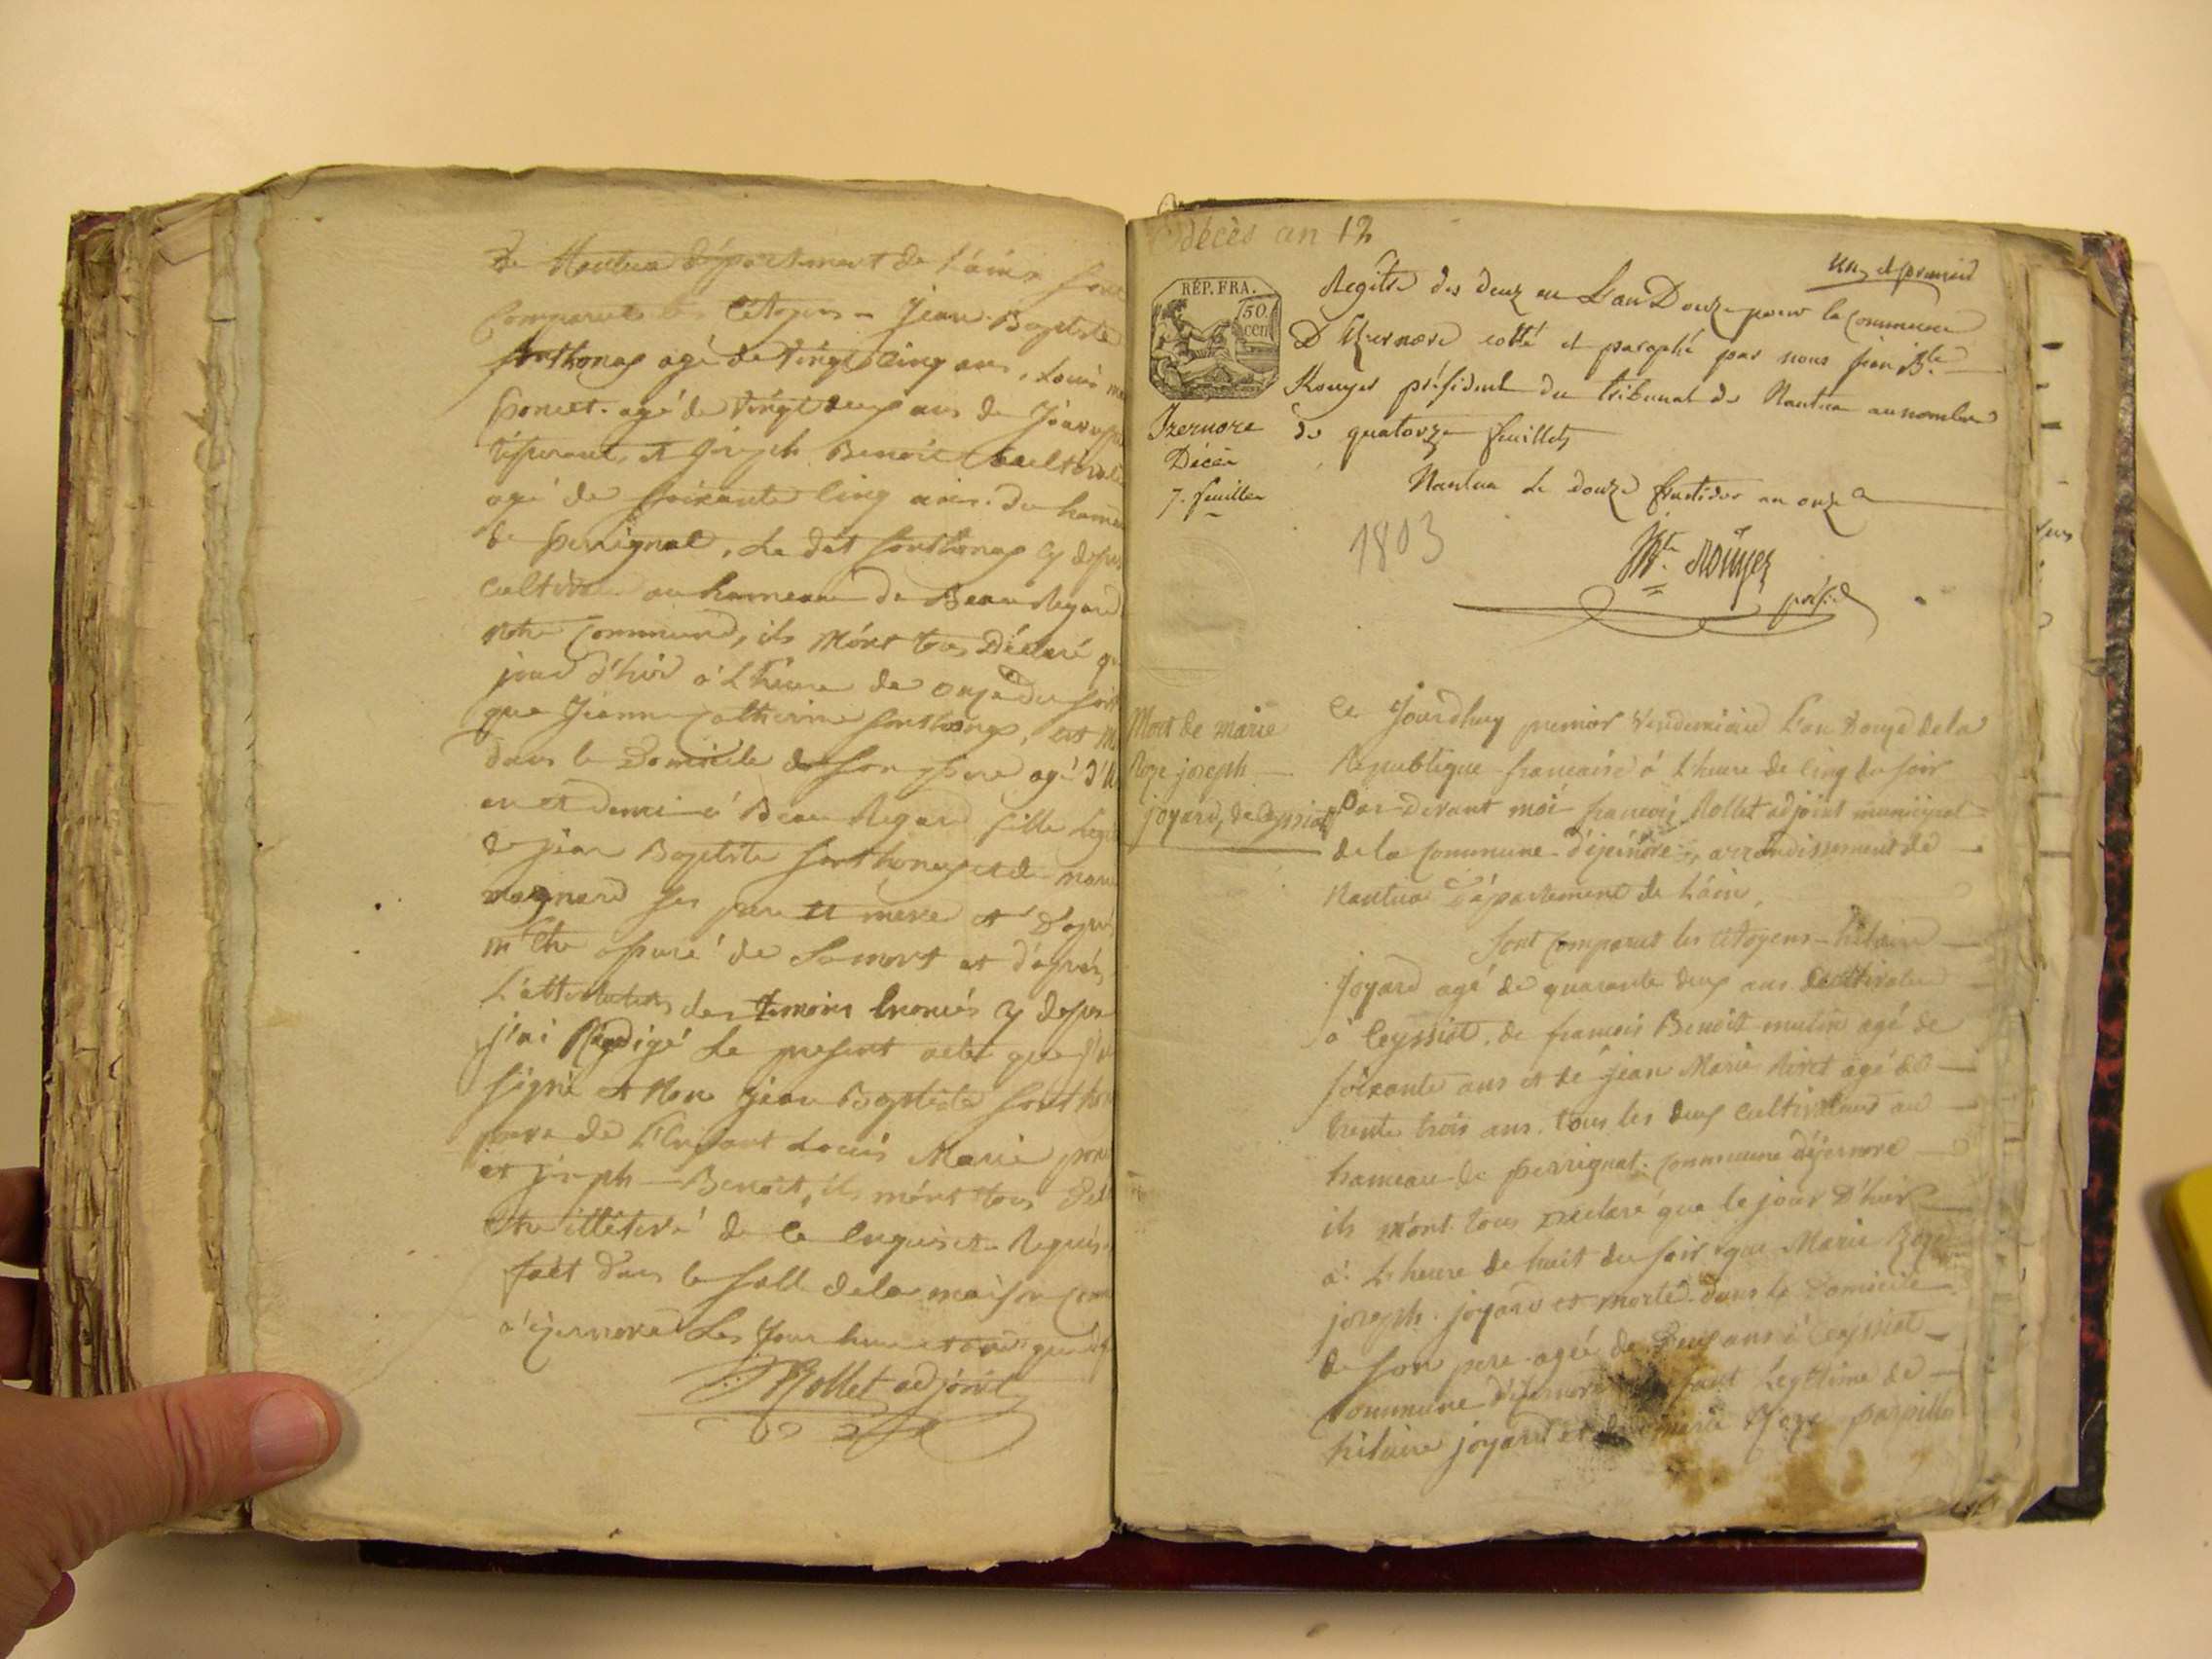 de Nantua département de l'ain sont
Comparut les Citoyens - jean Baptiste
sonthonax agé de vingt cinq ans, Louis
poncet agé de vingt deux ans de
et joseph Benoit Cultivate
agé de soixante cinq ans. du hameau
de perrignat, le dit sonthonax
cultivat au hameau de Beau Regard
notre Commune, ils m'ont tous Déclaré
jour d'hier à l'heure de onze du soir
que jeanne Catherine sonthonax, est
dans le Domicile de son pere agé d'
an et demi à Beau Regard fille
de jean Baptiste sonthonax et de
ses pere et mere et d'apré
m'être assuré de sa mort et d'après
L'attestation des temoins enoncés
j'ai Redigé le present acte que
signé et Non jean Baptiste
pere de L'Enfant Louis Marie
et joseph - Benoit, ils m'ont tous
être illétéré de ce enquis et Requis
fait dans la salle de la maison
a izernore Les jour heure et an que
Rollet adjoint
décès an 12
un et premier
RÉP. FRA.
50
cen
Regitre des deux en L'an Douze pour la Commune
D'Izernore cotté et paraphé par nous jean Bte
Rouyer président du tribunal de Nantua au nombre
de quatorze feuillets
Izernore
Décès
7. feuilles
Nantua le douze fructidor an onze
1803
Bte. Rouyer
présid
Mort de marie
Roze joseph
joyard, de Ceyssiat
Ce jourdhuy premier vendemiaire L'an Douze de la
Republique francaise à L'heure de cinq du soir
Par-Devant moi francois Rollet adjoint municipal
de la Commune d'izernore, arrondissement de
Nantua Département de L'ain,
sont Comparut les citoyens - hilaire
joyard agé de quarante deux ans Cultivateur
à Ceyssiat, de francois Benoit-mulin agé de
soixante ans et de jean Marie agé de
trente trois ans. tous les deux Cultivateurs au
hameau de perrignat. Commune d'izernore
ils m'ont tous Declaré que le jour d'hier
à L'heure de huit du soir que Marie Roze
joseph joyard est morte dans le Domicile
de son pere agée de Deux ans à Ceyssiat
Commune d'izernore Legitime de
hilaire joyard et marie Roze